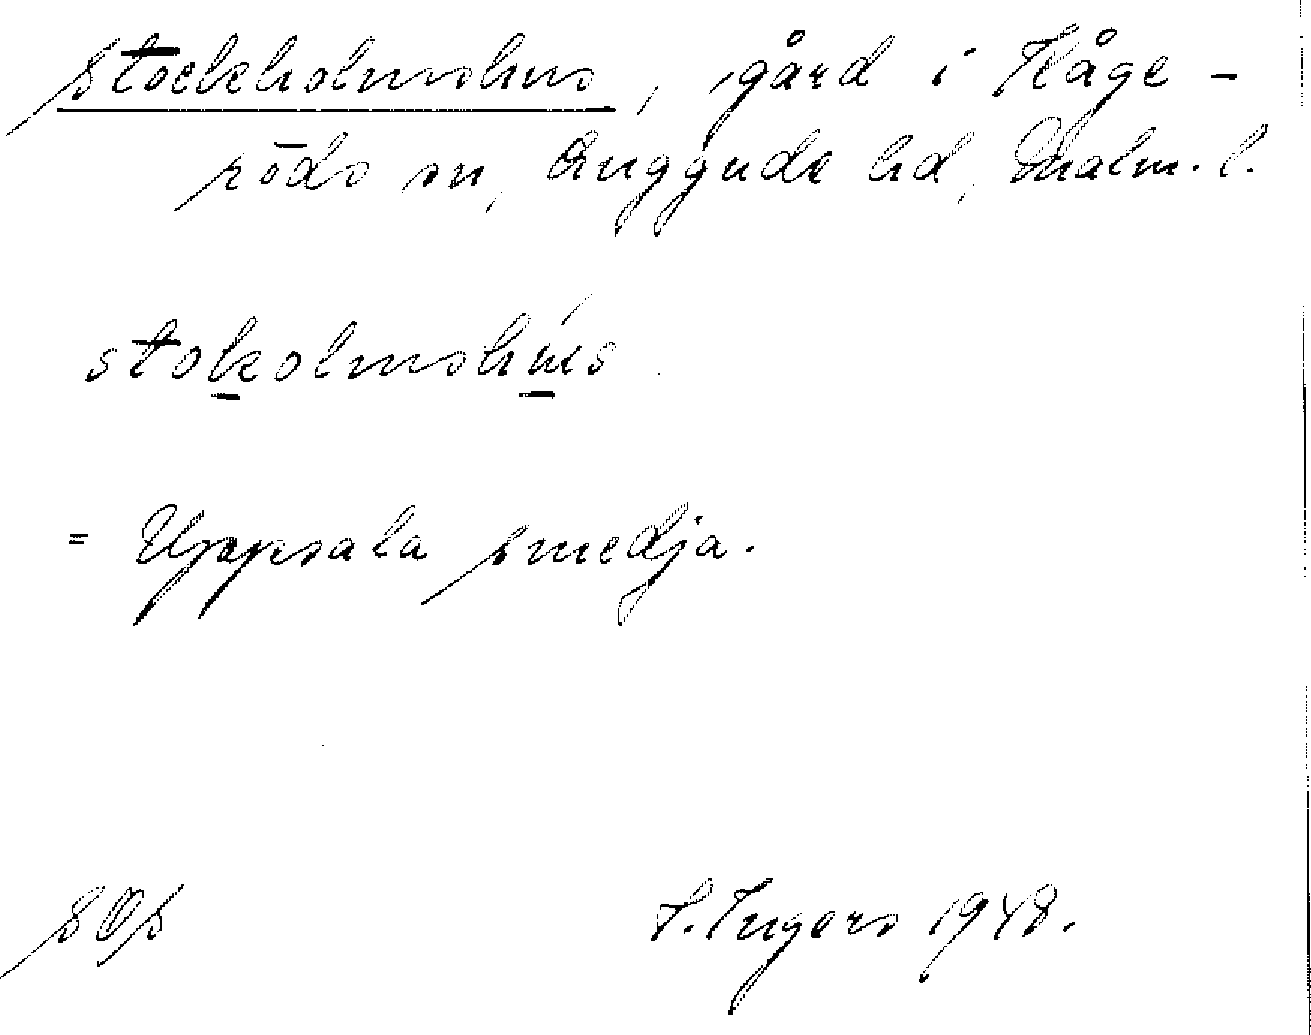 Stockholmshus, gård i Kåge-
röds sn, Luggude hd, Malm. l.
stokolmshús
= Uppsala smedja.
sOs
I. Ingers 1948.